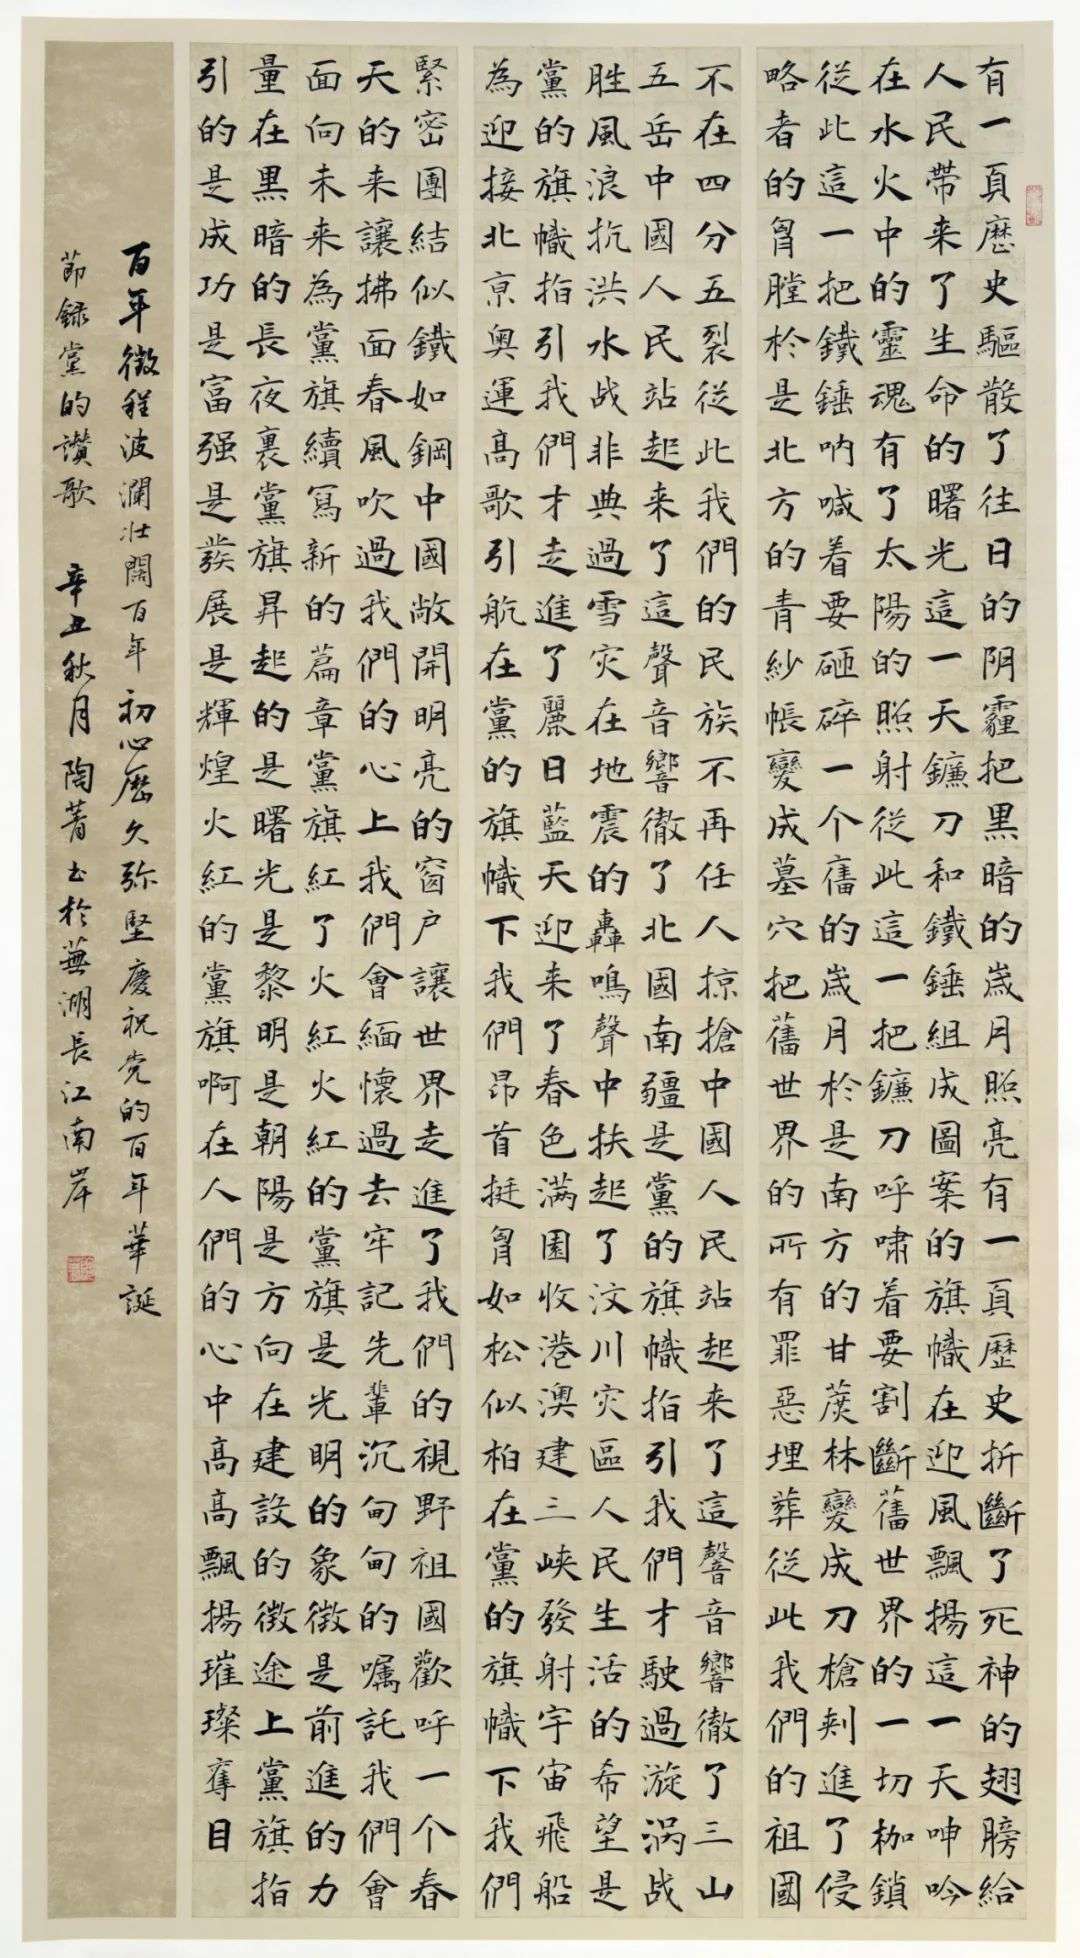 有一頁歷史驅散了往日的阴霾把黑暗的歲月照亮有一頁歷史折斷了死神的翅膀給
人民帶来了生命的曙光這一天鐮刀和鐵錘組成圖案的旗幟在迎風飄揚這一天呻吟
在水火中的靈魂有了太陽的照射從此這一把鐮刀呼啸着要割斷舊世界的一切枷鎖
從此這一把鐵錘吶喊着要砸碎一个舊的歲月於是南方的甘蔗林變成刀槍刺進了侵
略者的胷膛於是北方的青紗帳變成墓穴把舊世界的所有罪惡埋葬從此我們的祖國
不在四分五裂從此我們的民族不再任人掠搶中國人民站起来了這聲音響徹了三山
五岳中國人民站起来了這聲音響徹了北國南疆是黨的旗幟指引我們才駛過漩涡战
胜風浪抗洪水战非典過雪灾在地震的轟鳴聲中扶起了汶川灾區人民生活的希望是
黨的旗幟指引我們才走進了麗日藍天迎来了春色满園收港澳建三峡發射宇宙飛船
為迎接北京奥運高歌引航在黨的旗幟下我們昂首挺胷如松似柏在黨的旗幟下我們
緊密團結似鐵如鋼中國敞開明亮的窗户讓世界走進了我們的視野祖國歡呼一个春
天的来讓拂面春風吹過我們的心上我們會緬懷過去牢記先輩沉甸甸的囑託我們會
面向未来為黨旗續寫新的篇章黨旗紅了火紅火紅的黨旗是光明的象徵是前進的力
量在黑暗的長夜裏黨旗昇起的是曙光是黎明是朝陽是方向在建設的徵途上黨旗指
引的是成功是富强是發展是輝煌火紅的黨旗啊在人們的心中高高飄揚璀璨奪目
百年徵程波瀾壮闊百年初心歷久弥堅慶祝党的百年華誕
節録黨的讚歌 辛丑秋月陶菁书於蕪湖長江南岸